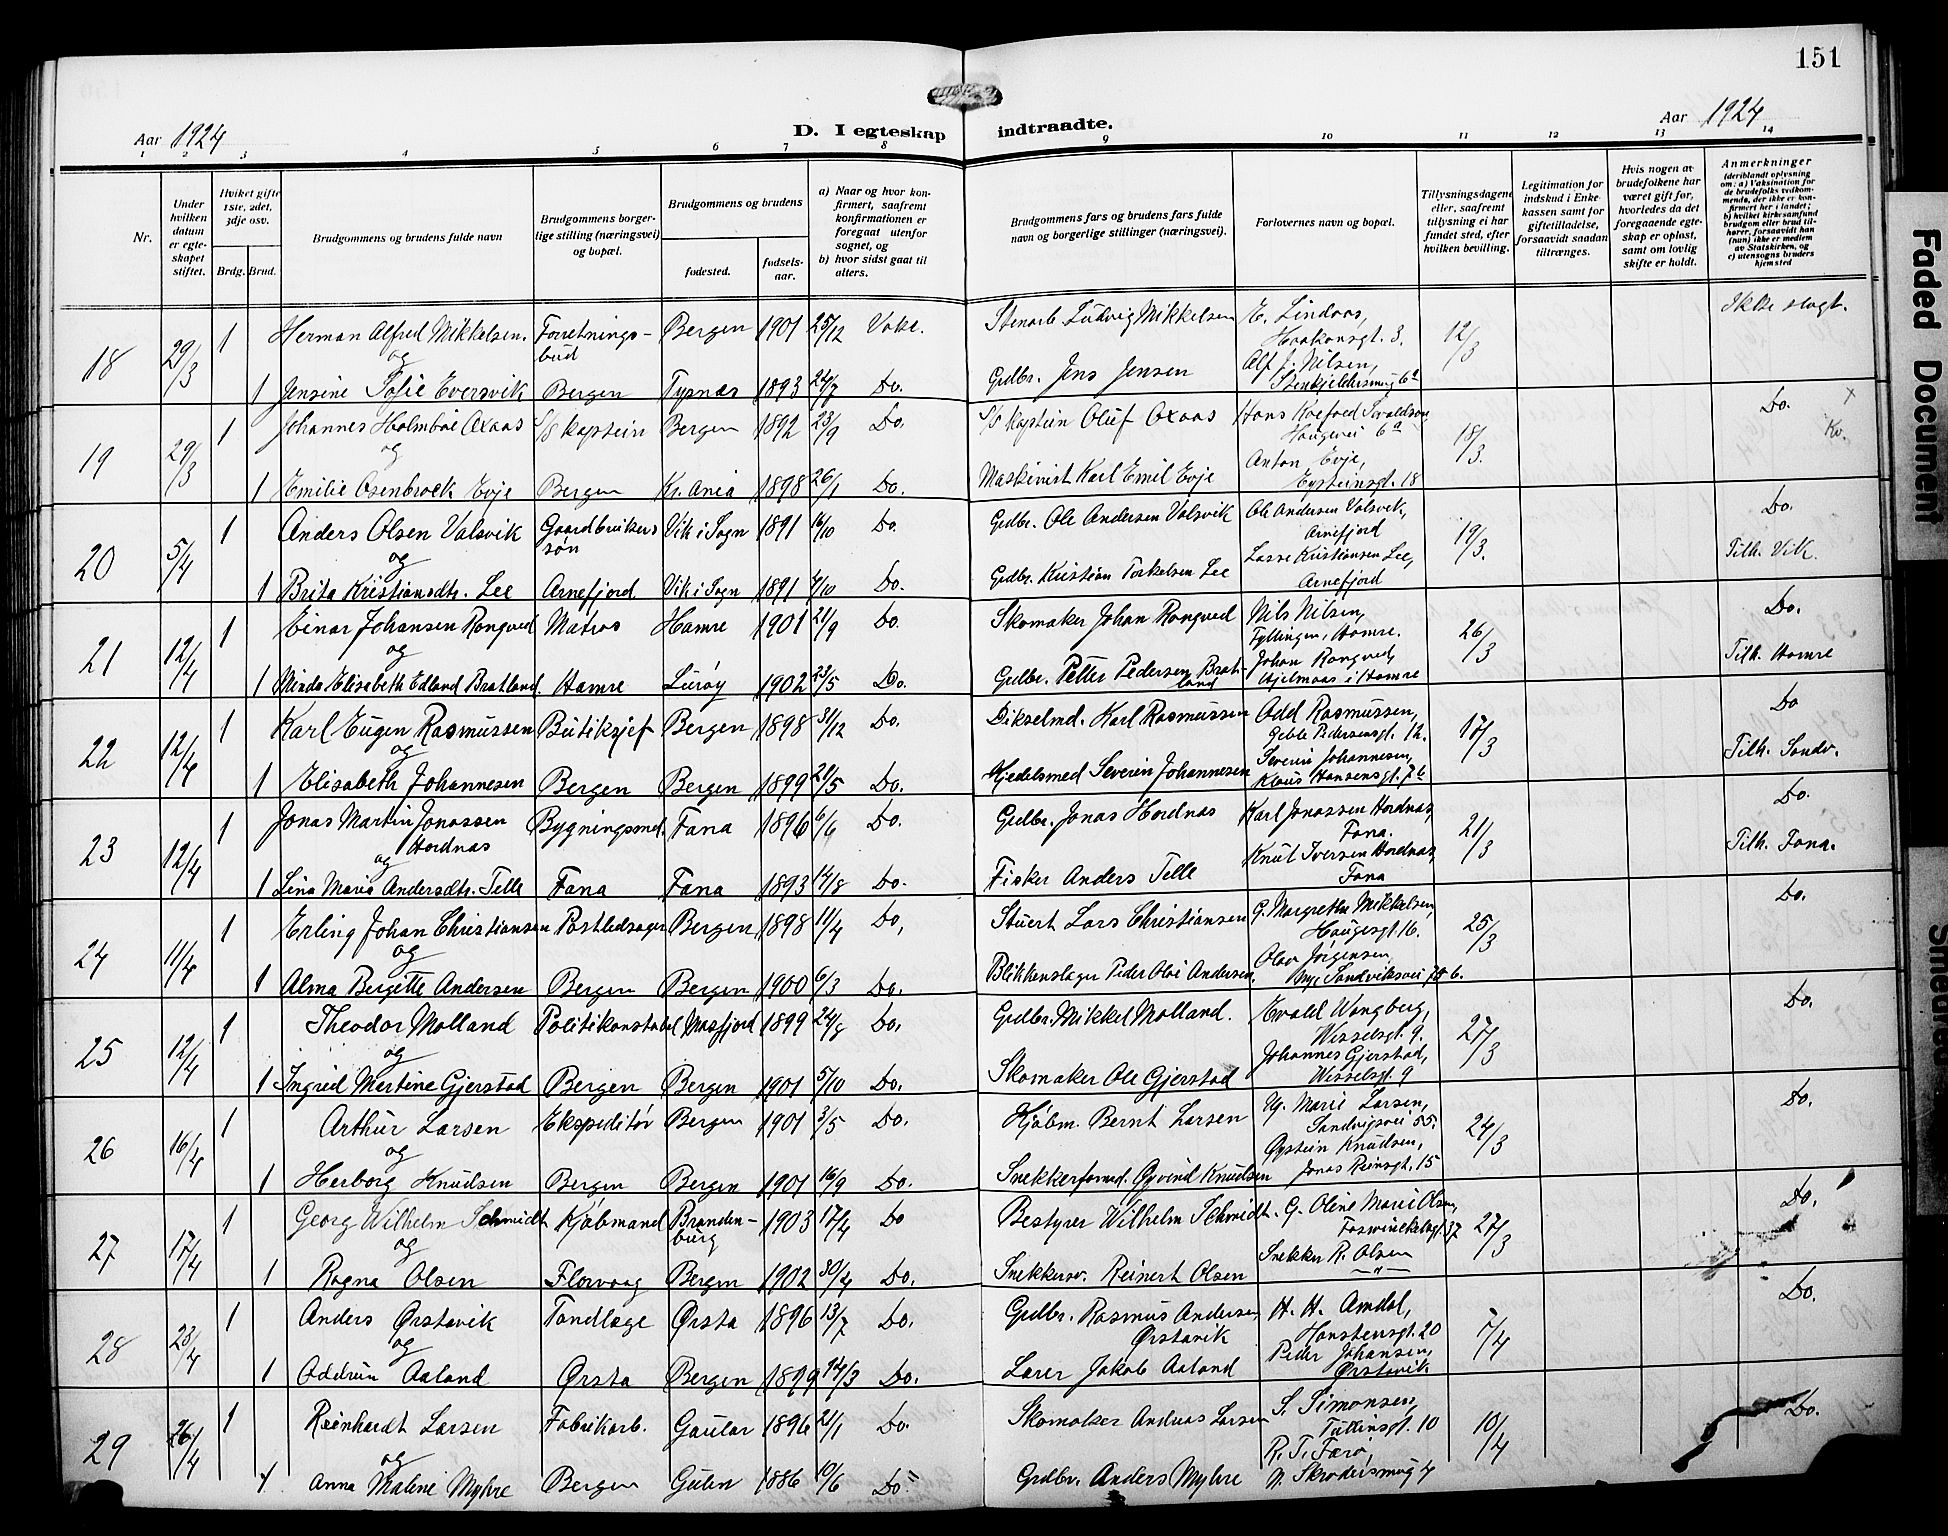 151
Aar 1924
D. I egteskap indtraadte.
Aar 1924
1 2 3 4 5 6 7 8 9 10 11 12 13 14
Nr.
Under hvilken datum er egteskapet stiftet.
Hviket gifte 1ste, 2det, 3dje osv.
Brdg. Brud.
Brudgommens og brudens fulde navn
Brudgommens borgerlige stilling (næringsvei) og bopæl.
Brudgommens og brudens
fødested.
fødselsaar.
a) Naar og hvor konfirmert, saafremt konfirmationen er foregaat utenfor sognet, og
b) hvor sidst gaat til alters.
Brudgommens fars og brudens fars fulde navn og borgerlige stillinger (næringsvei).
Forlovernes navn og bopæl.
Tillysningsdagene eller, saafremt tillysning ei har fundet sted, efter hvilken bevilling.
Legitimation for indskud i Enkekassen samt for giftetilladelse, forsaavidt saadan tiltrænges.
Hvis nogen av brudefolkene har været gift før, hvorledes da det foregaaende egteskap er opløst, samt om lovlig skifte er holdt.
Anmerkninger (deriblandt oplysning om: a) Vaksination for de brudefolks vedkommende, der ikke er konfirmert her i landet; b) hvilket kirkesamfund brudgom eller brud tilhører, forsaavidt han (hun) ikke er medlem av Statskirken, og c) utensogns bruders hjemsted
18 29/3 1 Herman Alfred Mikkelsen. Forretningsbud Bergen 1901 25/12 Vake. Stenarb Ludvig Mikkelsen E. Lindaas, Haakonsgt. 3. 12/3 Ikke slegt.
og
1 Jensine Sofie Eversvik Bergen Tysnæs 1893 24/7 Do. Grdbr. Jens Jensen Alf J. Nilsen, Stenkjeldersmug 6a
19 29/3 1 Johannes Holmboe Oxaas S/S Kaptein Bergen 1892 23/9 Do. S/S Kaptein Oluf Oxaas Hans Koefoed Sivaldsen, Haugevei 6a 18/3. Do. x Kv.
og
1 Emilie Osenbroch Evje Bergen Kr.ania 1898 26/1 Do. Maskinist Karl Emil Evje Anton Evje, Eysteinsgt. 18
20 5/4 1 Anders Olsen Valsvik Gaardbrukers søn Vik i Sogn 1891 16/10 Do. Grdbr. Ole Andersen Valsvik Ole Andersen Valsvik, Arnefjord 19/3. Do.
og
1 Brita Kristiansdtr. Lee Arnefjord Vik i Sogn 1891 4/10 Do. Grdbr. Kristian Torkelsen Lee Lasse Kristiansen Lee, Arnefjord Tilh. Vik.
21 12/4 1 Einar Johansen Rongved Matros Hamre 1901 21/9 Do. Skomaker Johan Rongved Nils Nilsen, Fyllingen, Hamre. 26/3 Do.
og
1 Minda Elisabeth Edland Bratland. Hamre Lurøy 1902 23/5 Do. Grdbr. Petter Pedersen Bratland Johan Rongved, Hjelmaas i Hamre Tilh. Hamre
22 12/4 1 Karl Eugen Rasmussen Butiksjef Bergen 1898 31/12 Do. Dikselmd. Karl Rasmussen Odd Rasmussen, Geble Pedersensgt. 12. 17/3 Do
og
1 Elisabeth Johannesen Bergen Bergen 1899 21/5 Do. Kjedelsmed Severin Johannesen Severin Johannesen, Klaus Hansensgt. 7b Tilh. Sandv.
23 12/4 1 Jonas Martin Jonassen Hordnas Bygningsmd. Fana 1896 6/6 Do. Grdbr. Jonas Hordnas Karl Jonassen Hordnas, Fana. 21/3 Do.
og
1 Lina Maria Andersdtr. Telle Fana Fana 1893 14/8 Do. Fisker Anders Telle Knut Iversen Hordnas, Fana Tilh. Fana.
24 11/4 1 Erling Johan Christiansen Postledsager Bergen 1898 11/4 Do, Stuert Lars Christiansen G. Margrethe Mikkelsen, Haugesgt. 16. 25/3 Do.
og
1 Alma Bergette Andersen Bergen Bergen 1900 6/3 Do. Blikkenslager Peder Olai Andersen. Olav Jørgensen, Nye Sandviksvei 78 b.
25 12/4 1 Theodor Molland Politikonstabel Masfjord 1899 24/8 Do, Grdbr. Mikkel Molland. Evald Wangberg, Wesselsgt. 9. 27/3 Do.
og
1 Ingrid Mertine Gjerstad Bergen Bergen 1901 5/10 Do. Skomaker Ole Gjerstad Johannes Gjerstad, Wesselsgt. 9
26 16/4 1 Arthur Larsen Ekspeditør Bergen 1901 3/5 Do. Kjøbm. Bernt Larsen Marie Larsen, Sandvigsvei 55. 24/3 Do.
og
1 Herborg Knudsen Bergen Bergen 1901 16/9 Do. Snekkerformd. Øyvind Knudsen Øystein Knudsen, Jonas Reinsgt. 15
27 17/4 1 Georg Wilhelm Schmidt Kjøbmand Brandenburg 1903 17/4 Do Bestyrer Wilhelm Schmidt. G. Oline Marie Olsen, Foswinckelsgt. 37 27/3 Do.
og
1 Ragna Olsen Florvaag Bergen 1902 30/4 Do. Snekkersv. Reinert Olsen Snekker R. Olsen —"—
28 23/4 1 Anders Ørstavik Tandlæge Ørsta 1896 13/7 Do. Grdbr. Rasmus Andersen Ørstavik H. H. Amdal, Hansteensgt. 20 7/4 Do.
og
1 Oddrun Aaland Ørsta Bergen 1899 14/3 Do. Lærer Jakob Aaland Peder Johansen, Ørstavik
29 26/4 1 Reinhardt Larsen Fabrikarb. Gaular 1896 21/1 Do. Skomaker Andreas Larsen S. Simonsen, Tullinsgt. 10 10/4 Do.
og
1 Anna Malene Myhre Bergen Gulen 1886 10/6 Do Grdbr. Anders Myhre R. T. Færø, N. Skrødersmug 4
Faded Document
Smeared